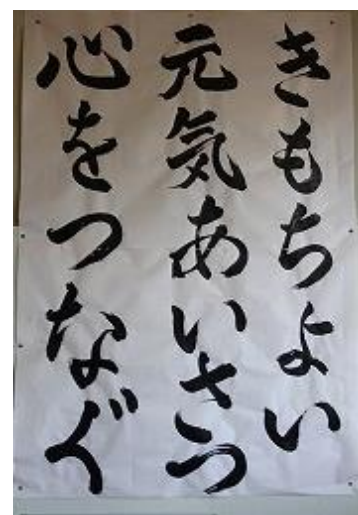 きもちよい
元気あいさつ
心をつなぐ